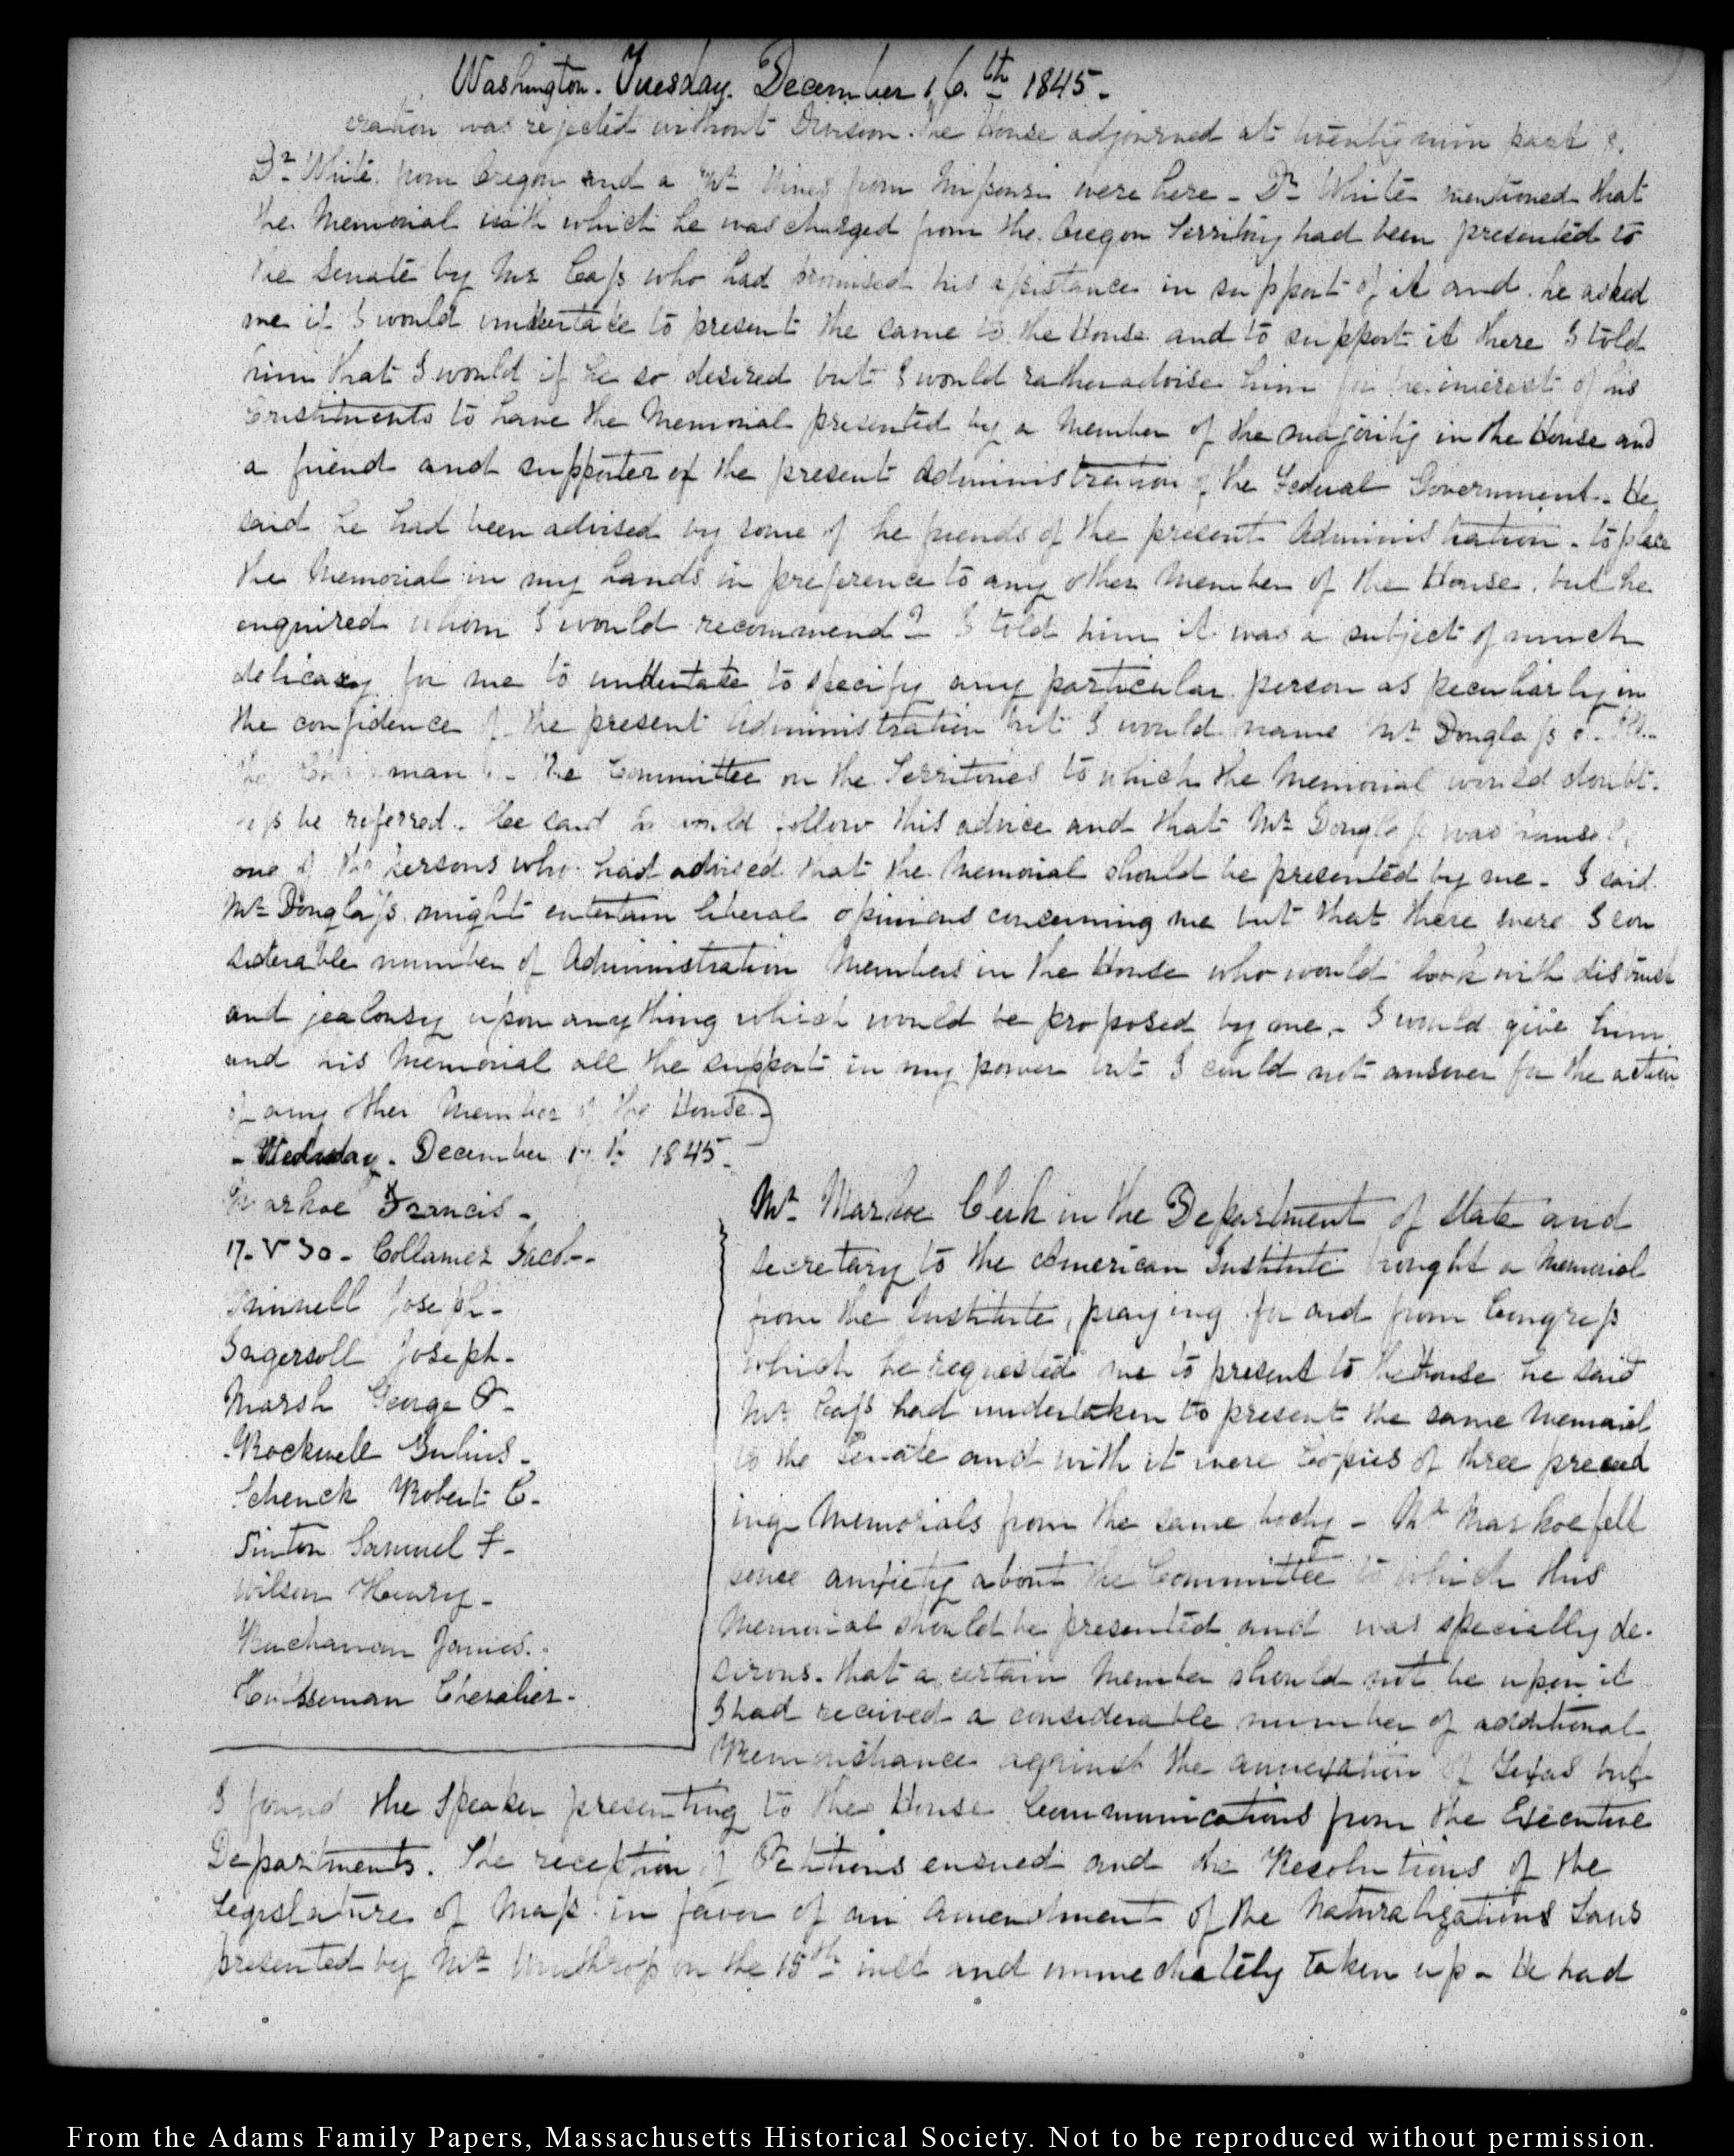 Washington. Tuesday. December 16.th 1845.
eration was rejected without Division. The House adjourned at twenty nine past 3.
Dr White from Oregon and a Mr Hines from Missouri were here - Dr White mentioned that
the Memorial with which he was charged from the Oregon Territory had been presented to
the Senate by Mr Cass who had promised his assistance in support of it and he asked
me if I would undertake to present the same to the House and to support it there I told
him that I would if he so desired but I would rather advise him for the interest of his
Constituents to have the Memorial presented by a Member of the majority in the House and
a friend and supporter of the present Administration of the Federal Government. He
said he had been advised by some of he friends of the present Administration - to place
the Memorial in my hands in preference to any other Member of the House, but he
enquired whom I would recommend? - I told him it was a subject of much
delicacy for me to undertake to specify any particular person as peculiarly in
the confidence of the present Administration but I would name Mr Douglass of Ill..
the Chairman of the Committee on the Territories to which the Memorial would doubt-
less be referred. He said he would follow this advice and that Mr Douglass was himself
one of the persons who had advised that the Memorial should be presented by me - I said
Mr Douglass might entertain liberal opinions concerning me but that there were I con
siderable number of Administration Members in the House who would look with distrust
and jealousy upon anything which would be proposed by me. - I would give him
and his Memorial all the support in my power but I could not answer for the action
of any other Member of the House)
- Wednesday. December 17.th 1845.
Markoe Francis -
17. V 30 - Collamer Jacob -
Grinnell Joseph -
Ingersoll Joseph -
Marsh George P -
Rockwell Julius -
Schenck Robert C -
Sinton Samuel F -
Wilson Henry -
Buchanan James. -
Hulseman Chevalier -
Mr Markoe Clerk in the Department of State and
secretary to the American Institute brought a Memorial
from the Institute, praying for aid from Congress
which he requested me to present to the House he said
Mr Cass had undertaken to present the same Memorial
to the Senate and with it were Copies of three preced
ing Memorials from the same body - Mr Markoe felt
some anxiety about the Committee to which this
Memorial should be presented and was specially de-
sirous that a certain Member should not be upon it
I had received a considerable number of additional
Remonstrance against the annexation of Texas but
I found the Speaker presenting to the House Communications from the Executive
Departments. The reception of Petitions ensued and the Resolutions of the
Legislature of Mass. in favor of an amendment of the Naturalizations Laws
presented by Mr Winthrop on the 15th inst and immediately taken up - He had
From the Adams Family Papers, Massachusetts Historical Society. Not to be reproduced without permission.